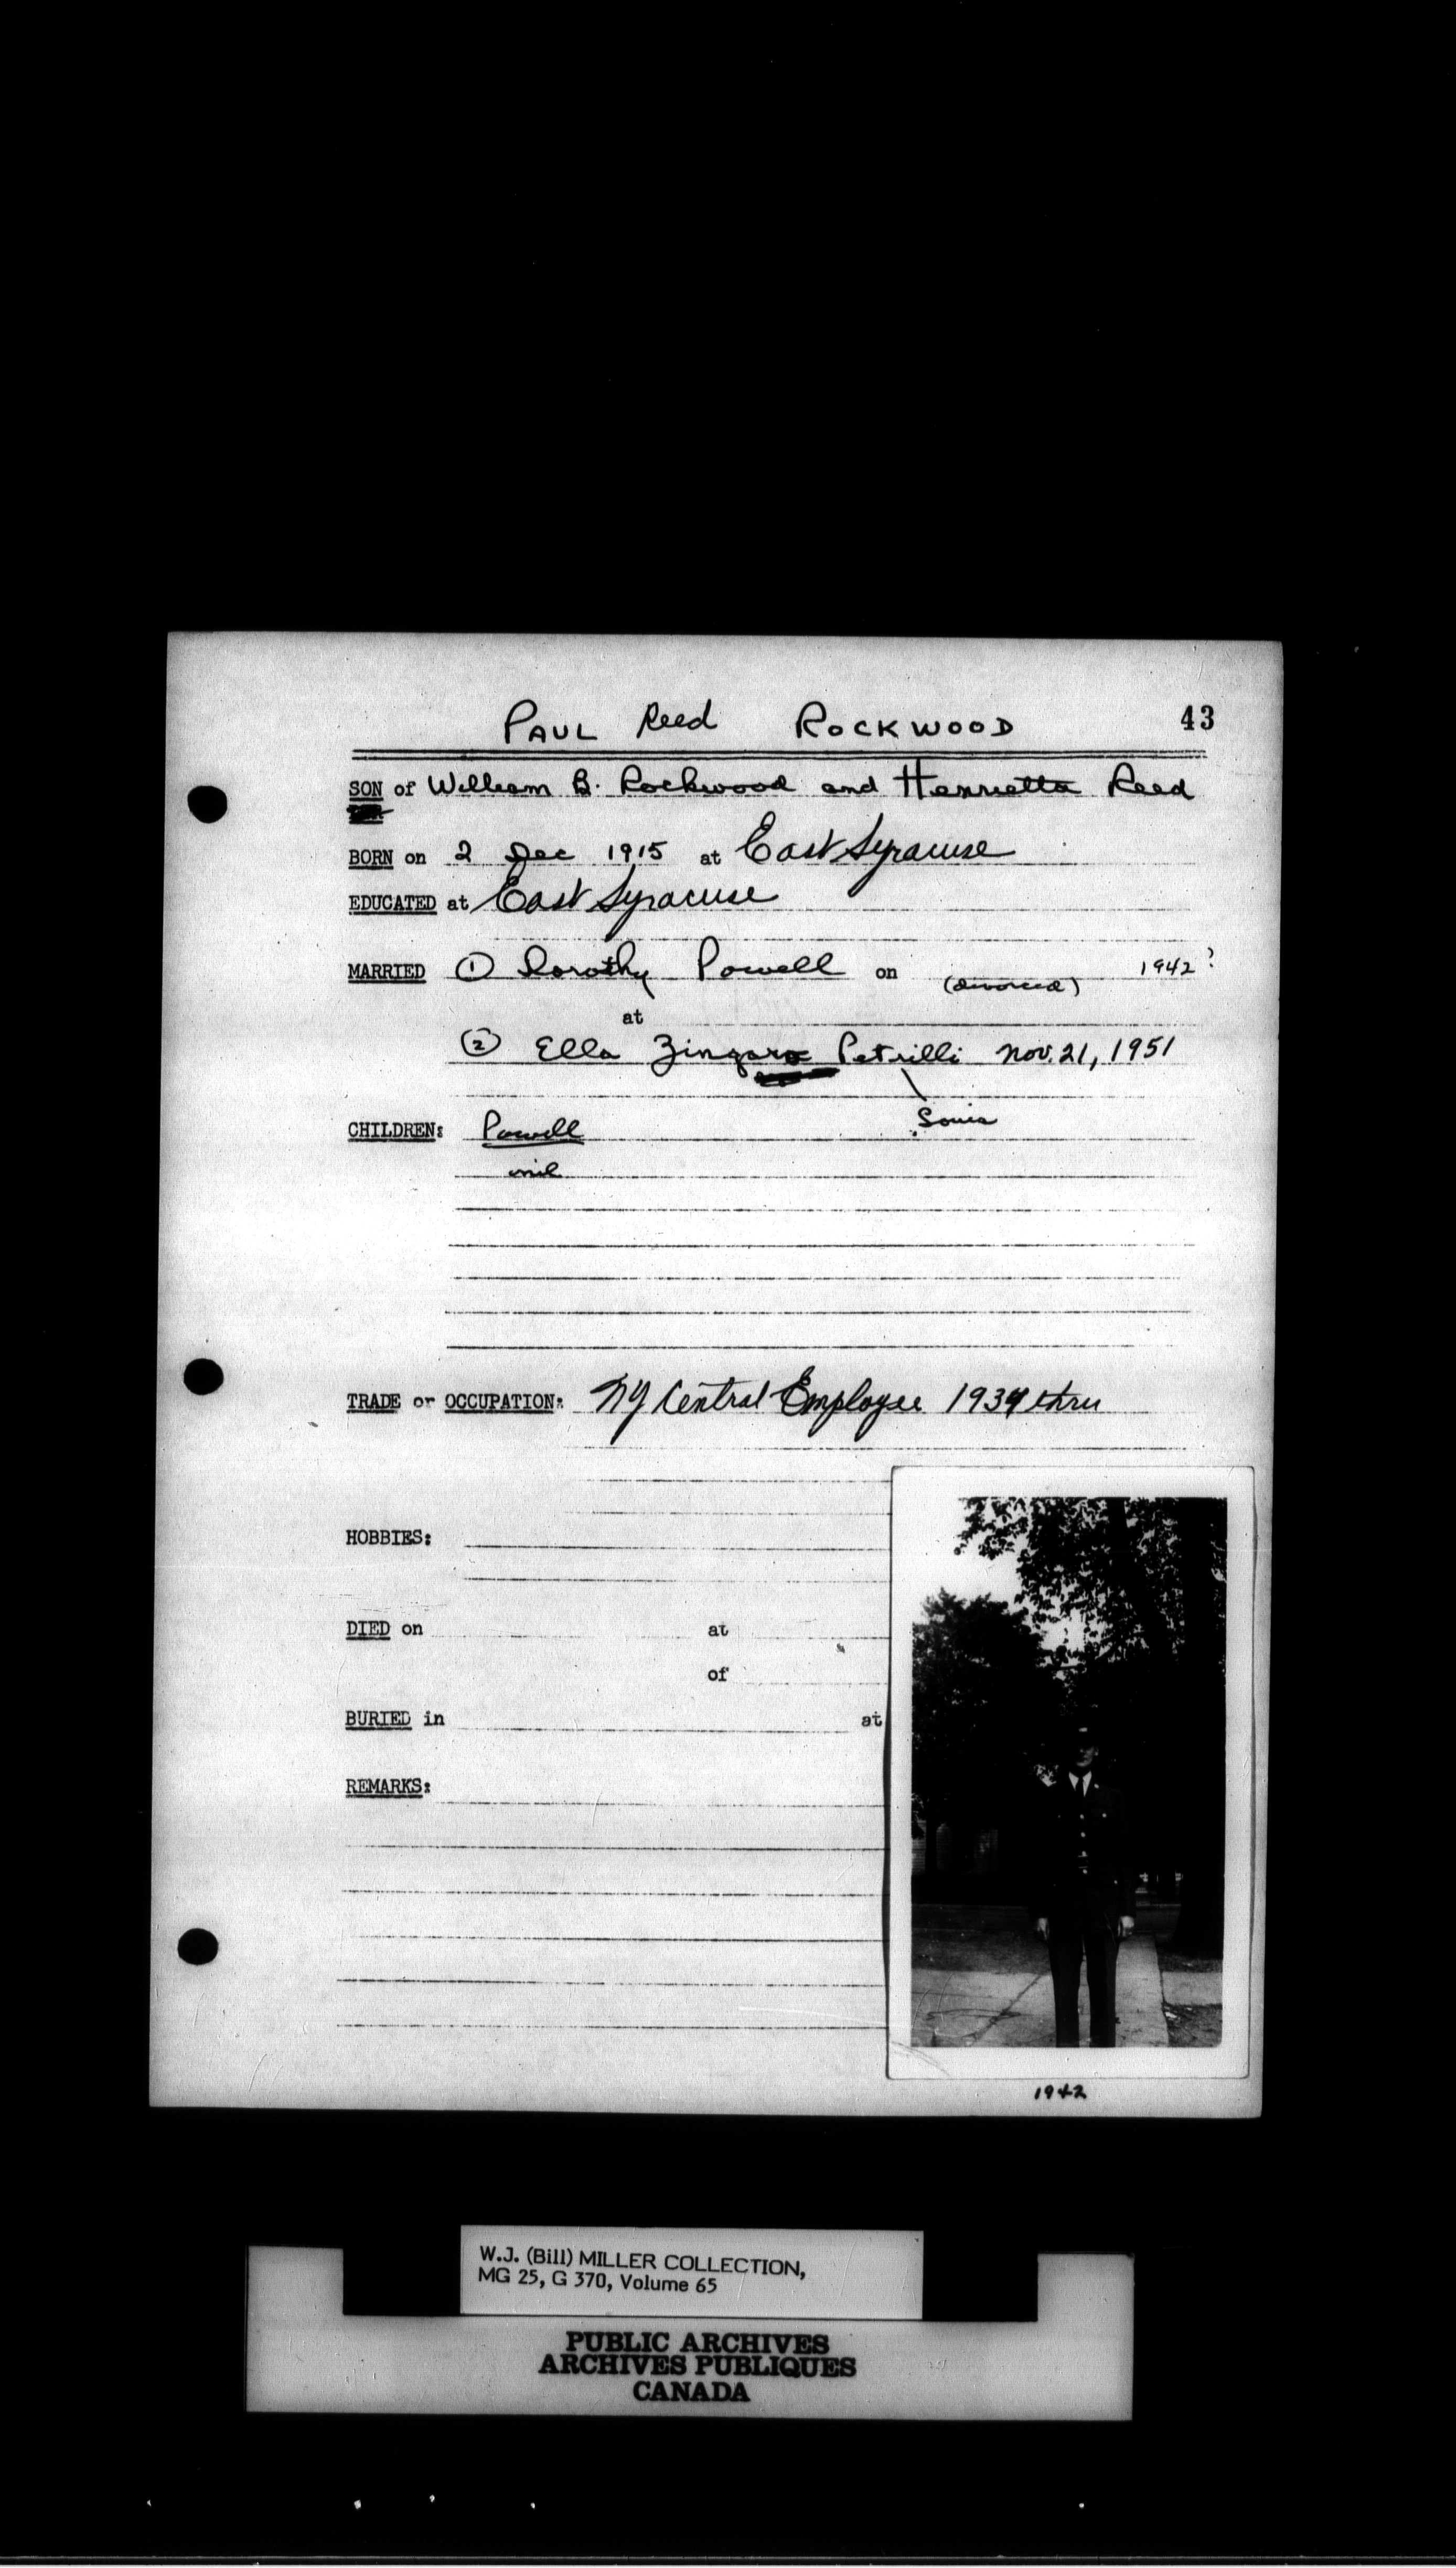 PAUL Reed ROCKWOOD 43
SON of William B. Rockwood and Henrietta Reed
BORN on 2 Dec 1915 at East Syracuse
EDUCATED at East Syracuse
MARRIED ① Dorothy Powell on (divorced) 1942?
at
② Ella Zingaro Petrilli Nov. 21, 1951
CHILDREN: Powell
nil
TRADE or OCCUPATION: NY Central Employee 1934 thru
HOBBIES:
DIED on at
of
BURIED in at
REMARKS:
1942
W.J. (Bill) MILLER COLLECTION,
MG 25, G 370, Volume 65
PUBLIC ARCHIVES
ARCHIVES PUBLIQUES
CANADA